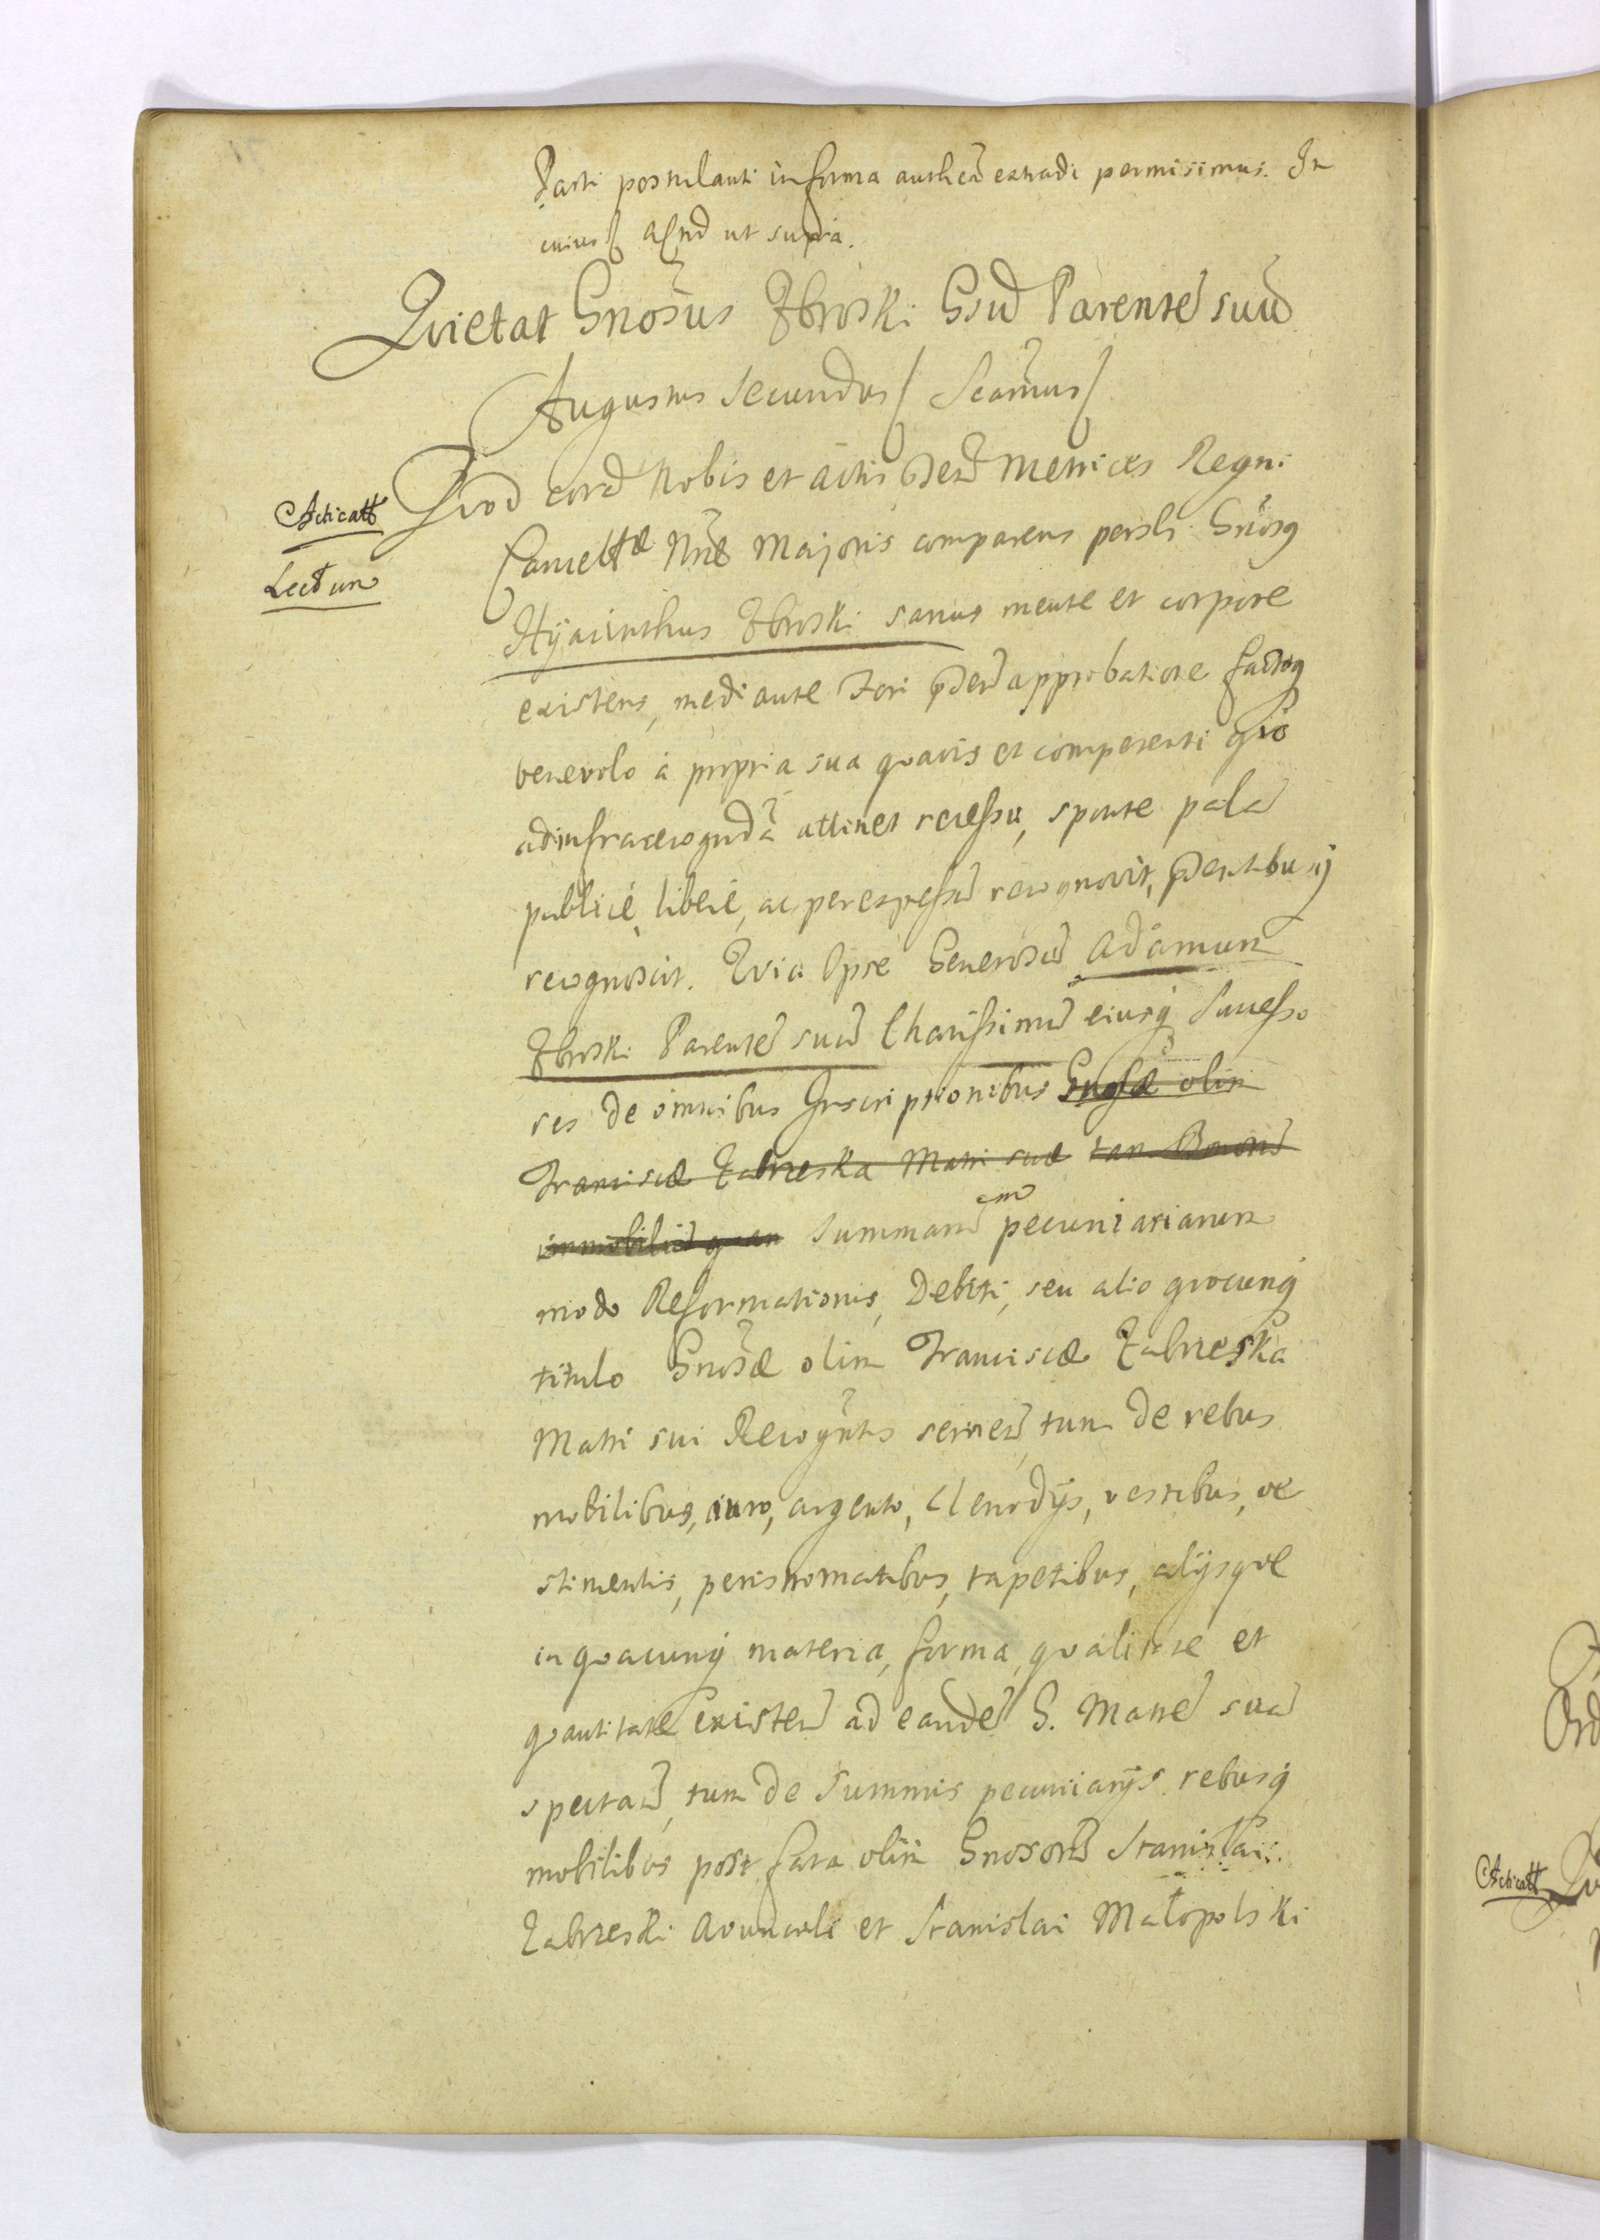 Parti postulanti in forma authen extradi permisimus. In
cuius ut supra.
Qvietat Gnosus Zbroski Gsu Parente suu
Augustus Secundus Scamus
Acticatt
Lectum
Qvod cora Nobis et actis pdent Metrices Regni
Cancell Nrae Majoris comparens persli Gnosq
Hyacinthus Zbroski sanus mente et corpore
existens, mediante Fori pden approbatione factoq
benevolo à propria sua qvavis et competenti qvo
ad infrarecognda attinet recessu, sponte pala
publicè, liberè, ac per expressu recognovit, pdentibusq
recognoscit. Qvia Ipse Generosu Adamum
Zbroski Parente suu Charissimu eiusq Successo
res de omnibus Inscriptionibus Gnosae olim
Franciscae Zabrzeska Matri suae tam Bonoru
immobiliu quam Summaru pecuniariarum
modo Reformationis, Debiti, seu alio qvocunq
titulo Gnosae olim Franciscae Zabrzeska
Matri sui Recogntis servien, tum de rebus
mobilibus, auro, argento, clenodijs, vestibus, ve
stimentis, peristromatibus, tapetibus, alijsqve
in qvacunq materia, forma, qvalitate et
qvantitate existen ad eande G. Matre sua
spectan, tum de Summis pecuniarijs rebusq
mobilibus post fata olim Gnosoru Stanislai
Zabrzeski Avunculi et Stanislai Małopolski
Acticatt